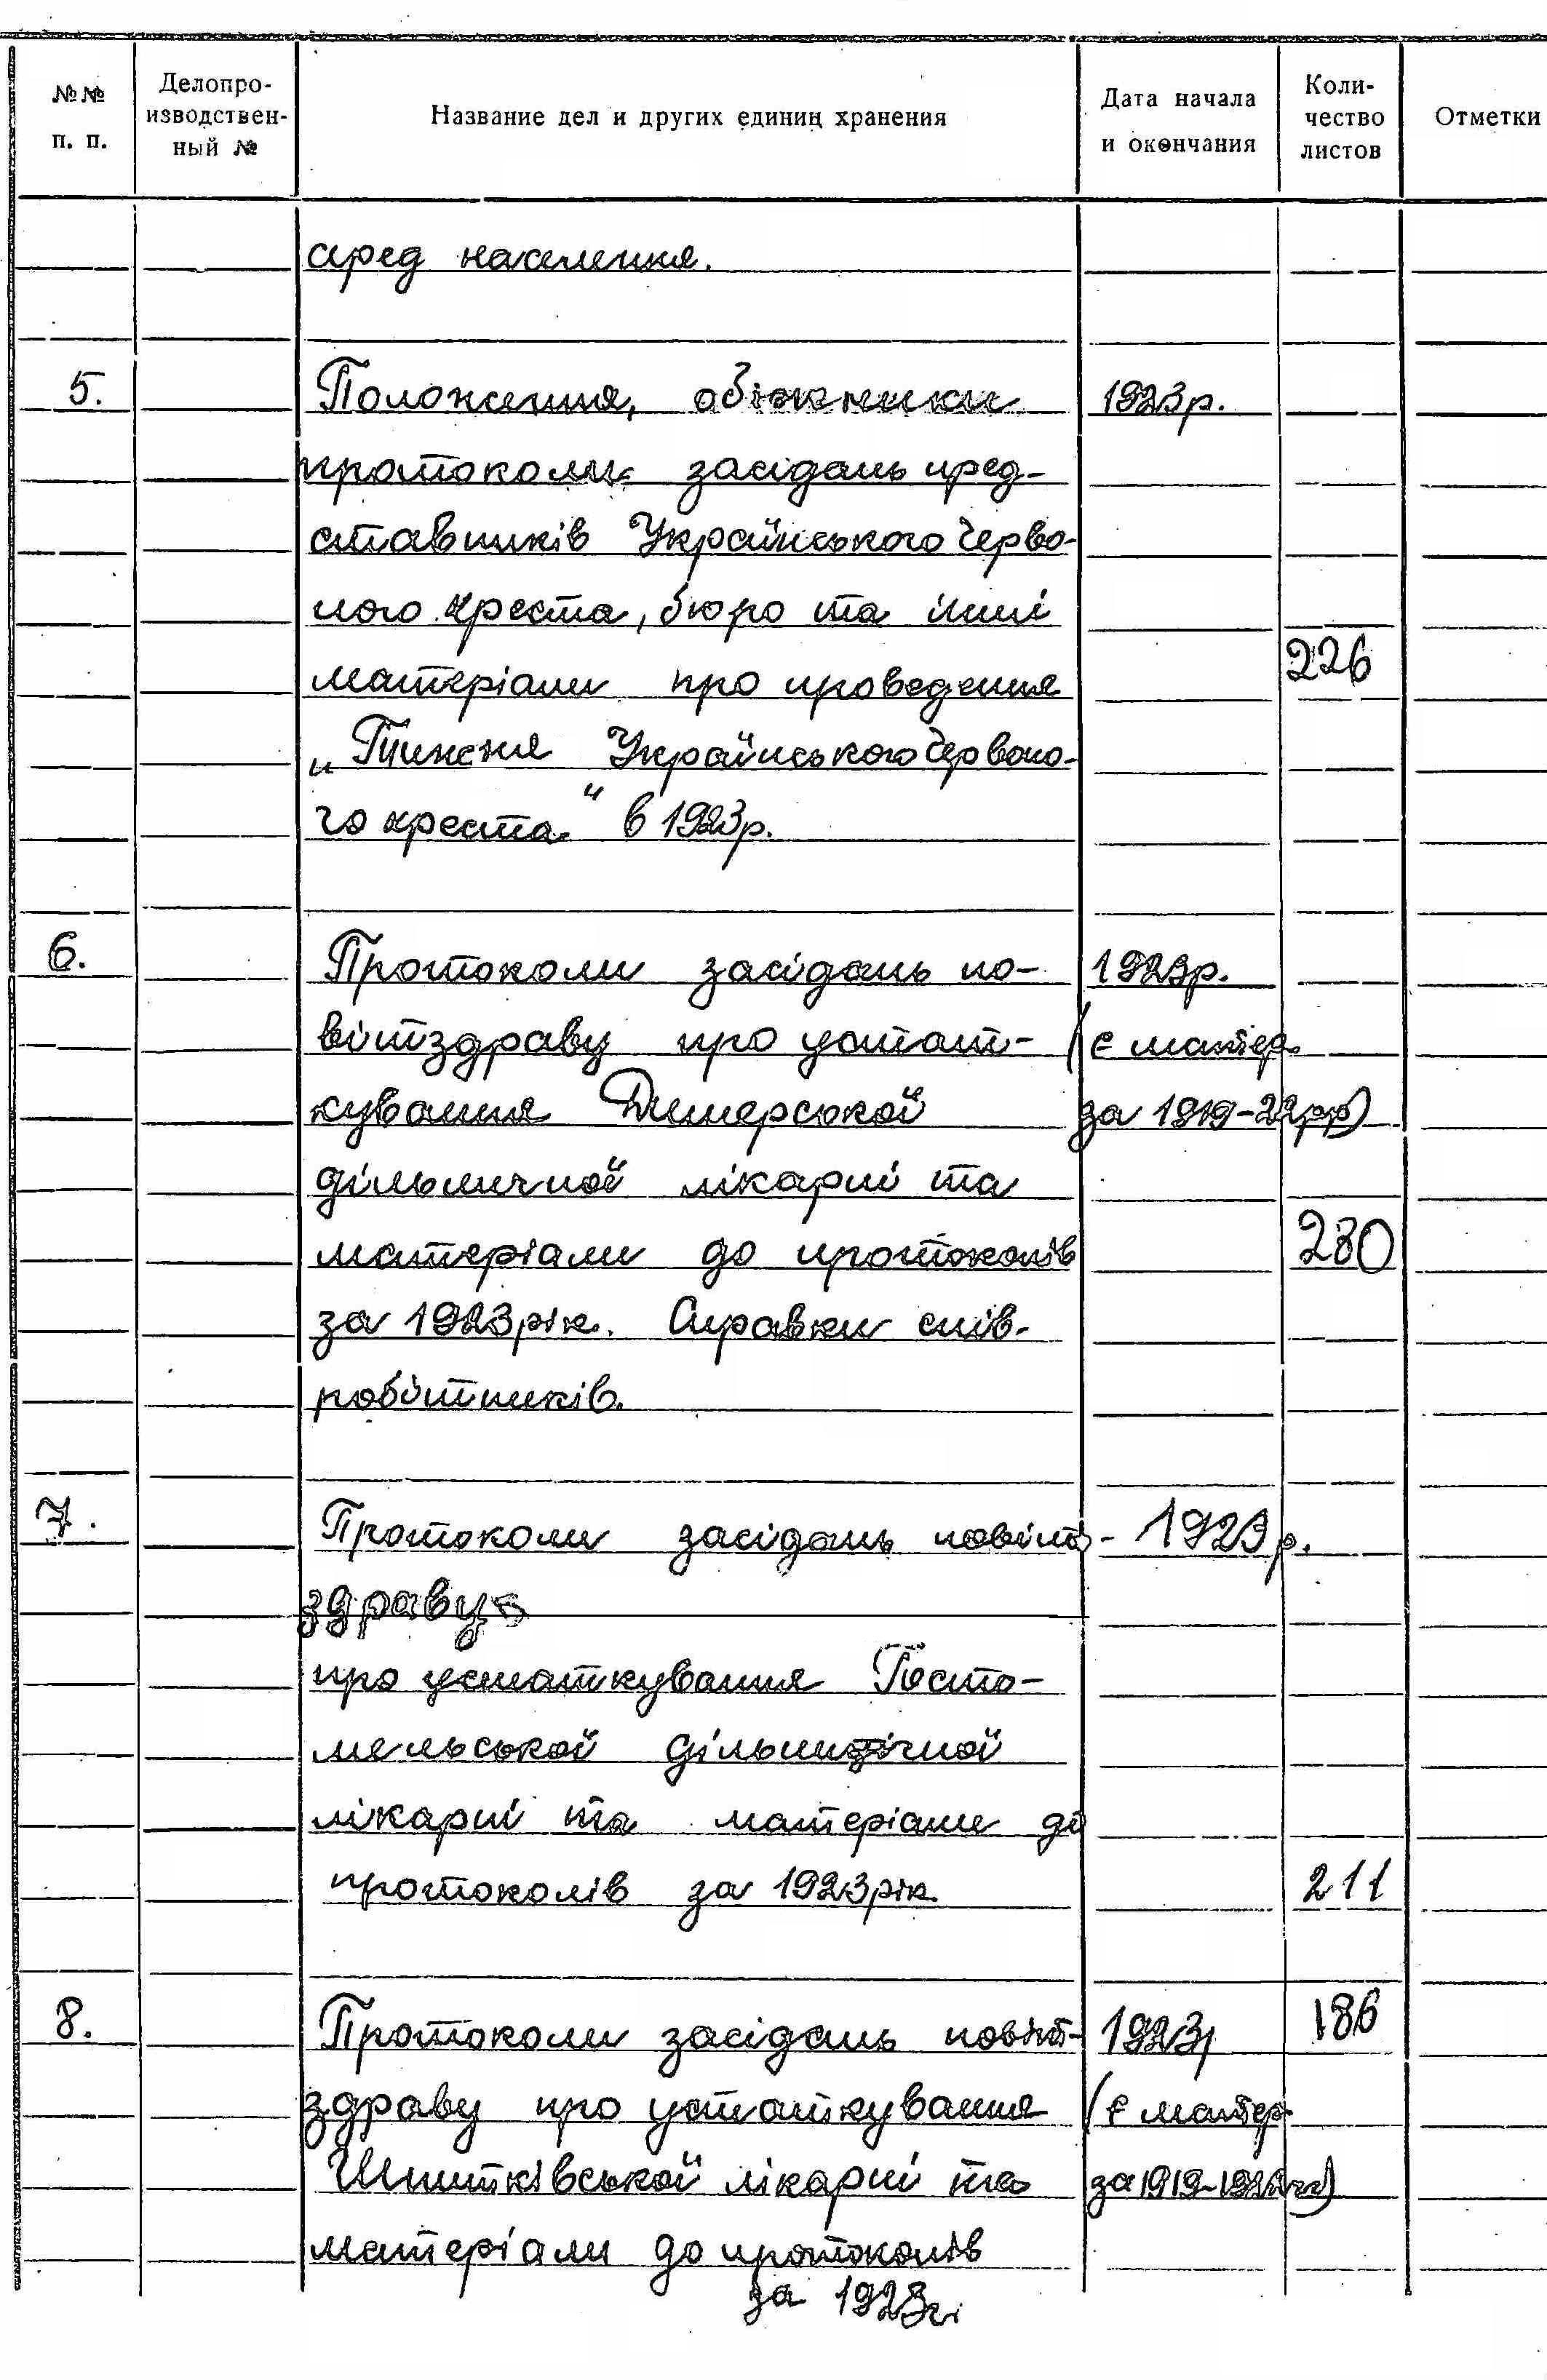 №№ п. п. Делопро-изводствен-ный № Название дел и других единиц хранения Дата начала и окончания Коли-чество листов Отметки
сред населення.
5. Положення, обіжники 1923р.
протоколи засідань пред-
ставників Українського Черво-
ного креста, бюро та інші
матеріали про проведення 226
„Тижня Українського Червоно-
го креста" в 1923р.
6. Протоколи засідань по- 1923р.
вітздраву про устат- (є матер.
кування Димерської за 1919-22рр)
дільничної лікарні та
матеріали до протоколів 230
за 1923рік. Справки спів-
робітників.
7. Протоколи засідань повіт- 1923р.
здраву
про устаткування Госто-
мельської дільничної
лікарні та матеріали до
протоколів за 1923рік. 211
8. Протоколи засідань повіт- 1923р 186
здраву про устаткування (є матер
Шпитківської лікарні та за 1919-1922гг)
матеріали до протоколів
за 1923г.